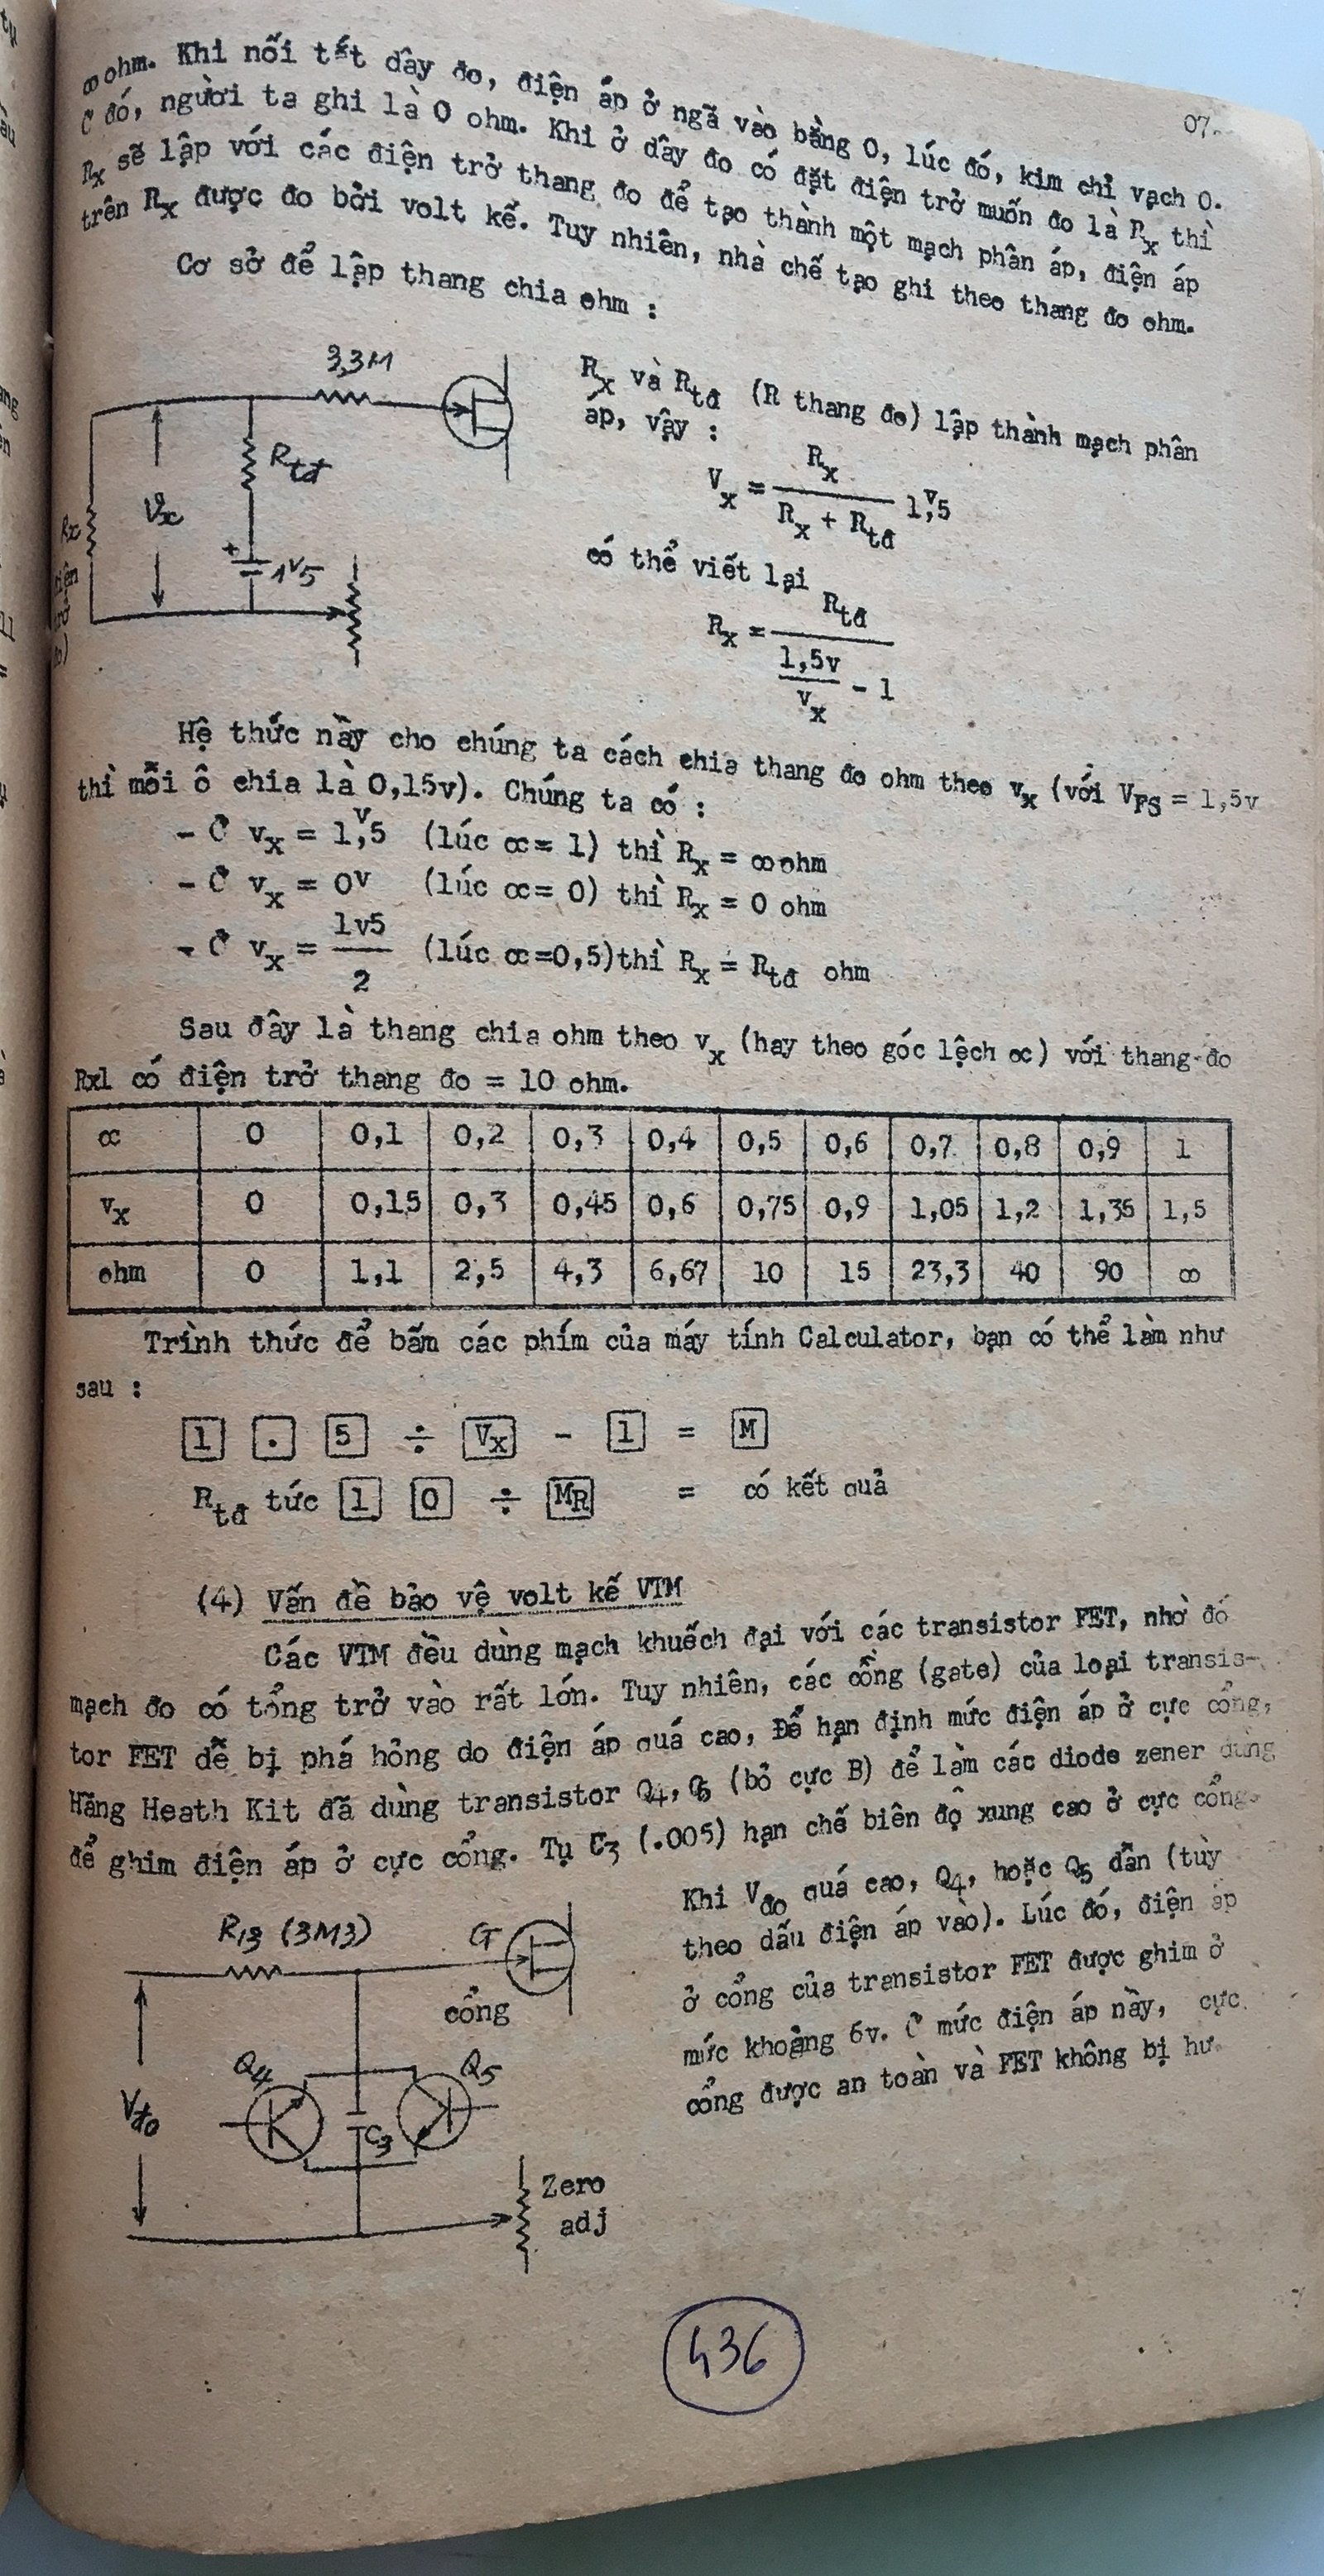 07
∞ ohm. Khi nối tắt dây đo, điện áp ở ngã vào bằng 0, lúc đó, kim chỉ vạch 0.
Ở đó, người ta ghi là 0 ohm. Khi ở dây đo có đặt điện trở muốn đo là Rx thì
Rx sẽ lập với các điện trở thang đo để tạo thành một mạch phân áp, điện áp
trên Rx được đo bởi volt kế. Tuy nhiên, nhà chế tạo ghi theo thang đo ohm.
Cơ sở để lập thang chia ohm :
3,3M
Rtđ
Vx
Rx
+
1V5
Rx và Rtđ (R thang đo) lập thành mạch phân
áp, vậy :
Vx = Rx / (Rx + Rtđ) 1,5v
có thể viết lại
Rx = Rtđ / (1,5v / vx - 1)
Hệ thức nầy cho chúng ta cách chia thang đo ohm theo vx (với VFS = 1,5v
thì mỗi ô chia là 0,15v). Chúng ta có :
- Ở vx = 1,5v (lúc ∝ = 1) thì Rx = ∞ ohm
- Ở vx = 0v (lúc ∝ = 0) thì Rx = 0 ohm
- Ở vx = 1v5 / 2 (lúc ∝ =0,5)thì Rx = Rtđ ohm
Sau đây là thang chia ohm theo vx (hay theo góc lệch ∝) với thang đo
Rx1 có điện trở thang đo = 10 ohm.
∝ 0 0,1 0,2 0,3 0,4 0,5 0,6 0,7 0,8 0,9 1
vx 0 0,15 0,3 0,45 0,6 0,75 0,9 1,05 1,2 1,35 1,5
ohm 0 1,1 2,5 4,3 6,67 10 15 23,3 40 90 ∞
Trình thức để bấm các phím của máy tính Calculator, bạn có thể làm như
sau :
1 . 5 ÷ Vx - 1 = M
Rtđ tức 1 0 ÷ MR = có kết quả
(4) Vấn đề bảo vệ volt kế VTM
Các VTM đều dùng mạch khuếch đại với các transistor FET, nhờ đó
mạch đo có tổng trở vào rất lớn. Tuy nhiên, các cổng (gate) của loại transis-
tor FET dễ bị phá hỏng do điện áp quá cao, Để hạn định mức điện áp ở cực cổng,
Hãng Heath Kit đã dùng transistor Q4, Q5 (bỏ cực B) để làm các diode zener dùng
để ghim điện áp ở cực cổng. Tụ C3 (.005) hạn chế biên độ xung cao ở cực cổng.
Khi Vđo quá cao, Q4, hoặc Q5 dẫn (tùy
theo dấu điện áp vào). Lúc đó, điện áp
ở cổng của transistor FET được ghim ở
mức khoảng 6v. Ở mức điện áp này, cực
cổng được an toàn và FET không bị hư.
R13 (3M3)
G
cổng
Q4
Q5
Vđo
C3
Zero
adj
436